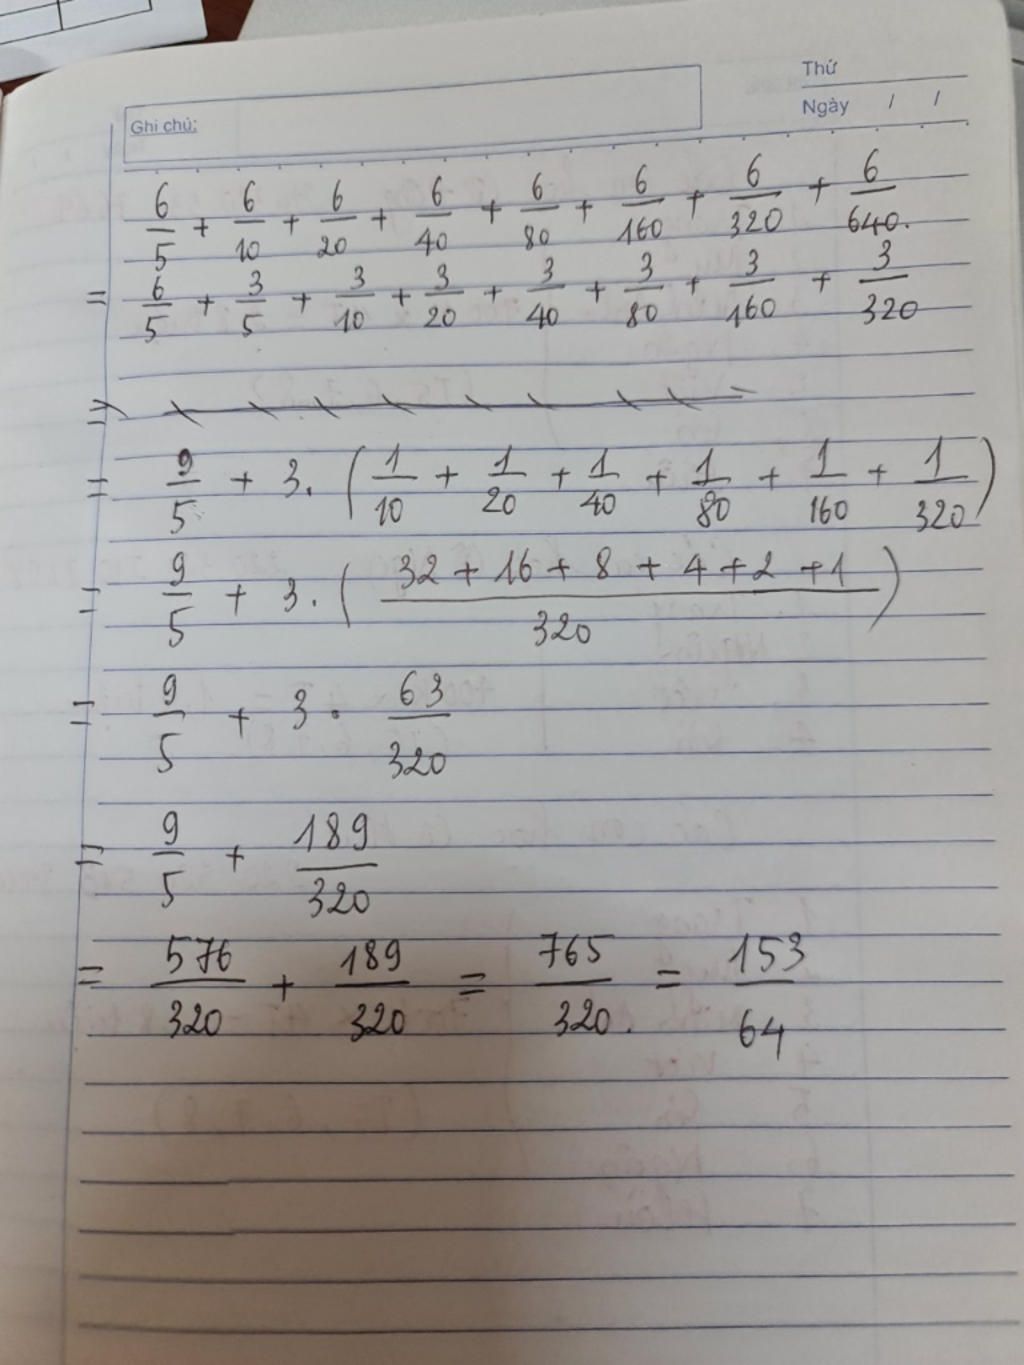 Thứ
Ghi chú:
Ngày / /
6/5 + 6/10 + 6/20 + 6/40 + 6/80 + 6/160 + 6/320 + 6/640.
= 6/5 + 3/5 + 3/10 + 3/20 + 3/40 + 3/80 + 3/160 + 3/320
=
= 9/5 + 3. (1/10 + 1/20 + 1/40 + 1/80 + 1/160 + 1/320)
= 9/5 + 3. ((32 + 16 + 8 + 4 + 2 + 1)/320)
= 9/5 + 3 . 63/320
= 9/5 + 189/320
= 576/320 + 189/320 = 765/320. = 153/64